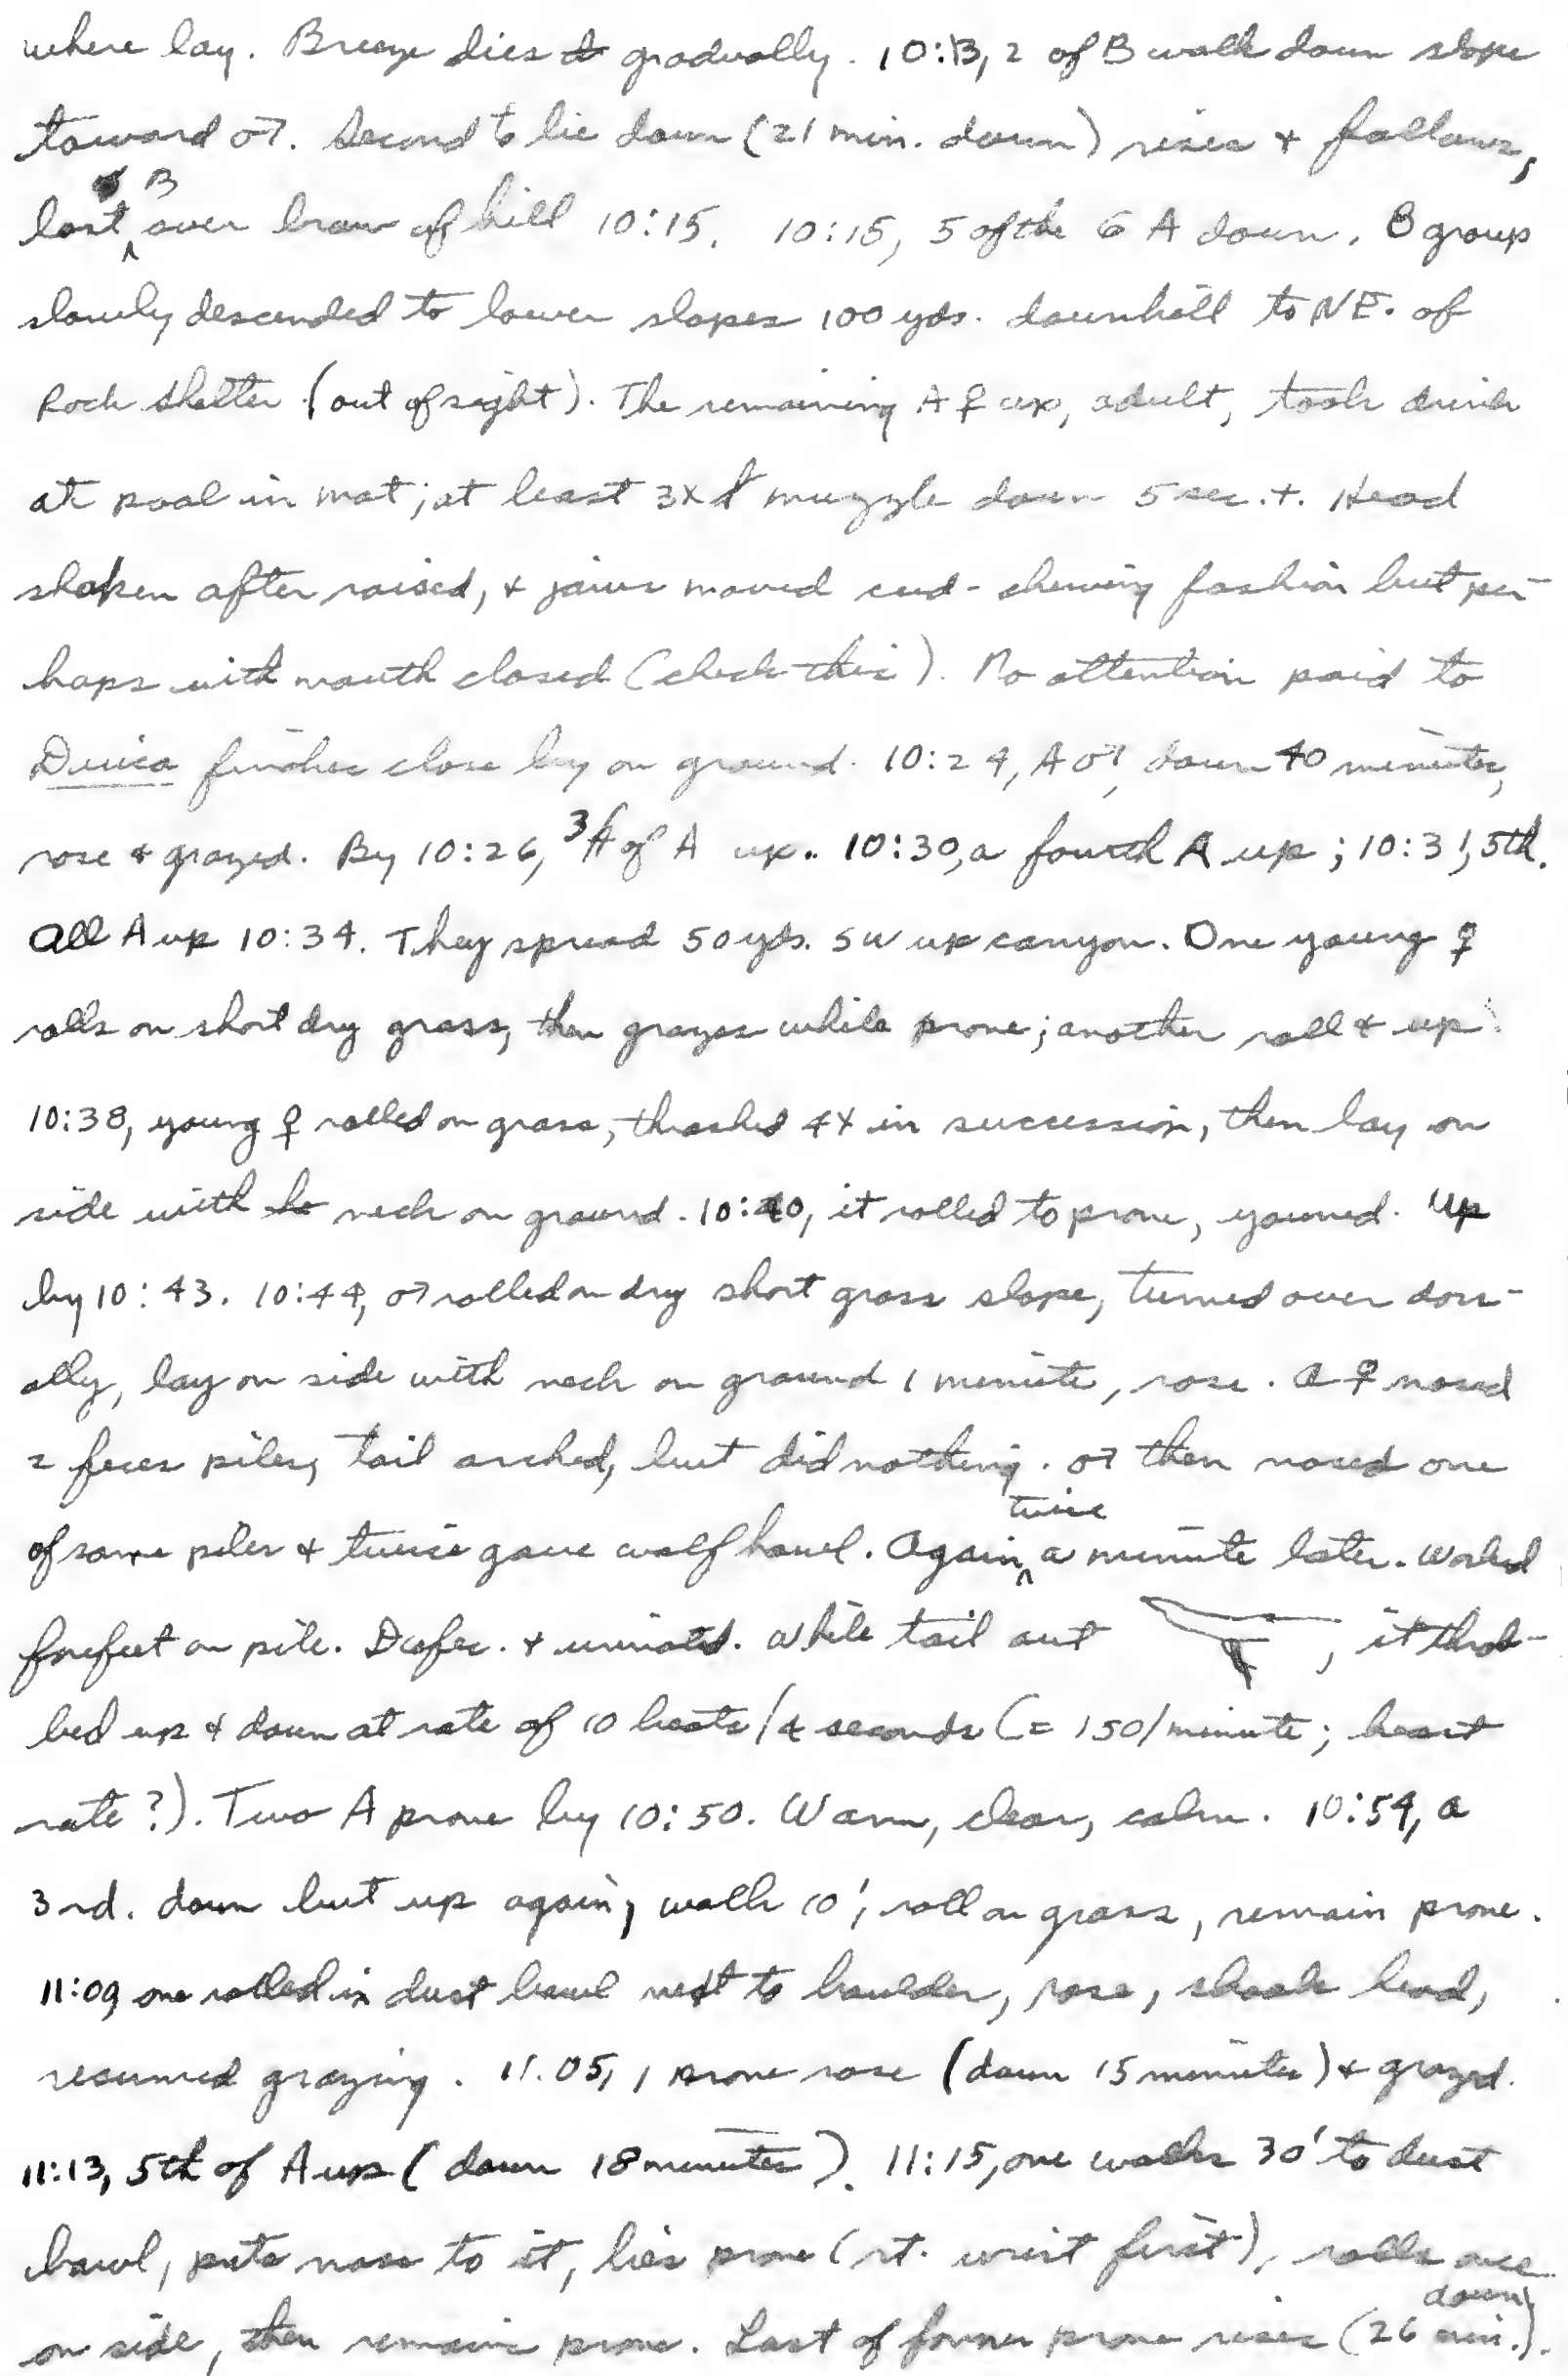 where lay. Breeze dies gradually. 10:13, 2 of B walk down slope
toward ♂. Second to lie down (21 min. down) rises + follows,
last B over brow of hill 10:15. 10:15, 5 of the 6 A down. B group
slowly descended to lower slopes 100 yds. downhill to NE. of
Rock Shelter (out of sight). The remaining A ♀ up, adult, took drink
at pool in mat; at least 3x muzzle down 5 sec.+. Head
shaken after raised, + jaws moved cud-chewing fashion but per-
haps with mouth closed (check this). No attention paid to
Diuca finches close by on ground. 10:24, A ♂, down 40 minutes,
rose + grazed. By 10:26, 3 of A up. 10:30, a fourth A up; 10:31, 5th.
All A up 10:34. They spread 50 yds. SW up canyon. One young ♀
rolls on short dry grass, then grazes while prone; another roll + up.
10:38, young ♀ rolled on grass, thrashed 4x in succession, then lay on
side with neck on ground. 10:40, it rolled to prone, yawned. Up
by 10:43. 10:44, ♂ rolled on dry short grass slope, turned over dors-
ally, lay on side with neck on ground 1 minute, rose. A ♀ nosed
2 feces piles, tail arched, but did nothing. ♂ then nosed one
of same piles + twice gave wolf howl. Again twice a minute later. Worked
forefeet on pile. Defec. + urinated. While tail out , it throb-
bed up + down at rate of 10 beats/4 seconds (= 150/minute; heart
rate?). Two A prone by 10:50. Warm, clear, calm. 10:54, a
3rd. down but up again, walk 10', roll on grass, remain prone.
11:09, one rolled in dust bowl next to boulder, rose, shook head,
resumed grazing. 11.05, 1 prone rose (down 15 minutes) + grazed.
11:13, 5th of A up (down 18 minutes). 11:15, one walks 30' to dust
bowl, puts nose to it, lies prone (rt. wrist first), rolls once
on side, then remains prone. Last of former prone rises (26 min. down).